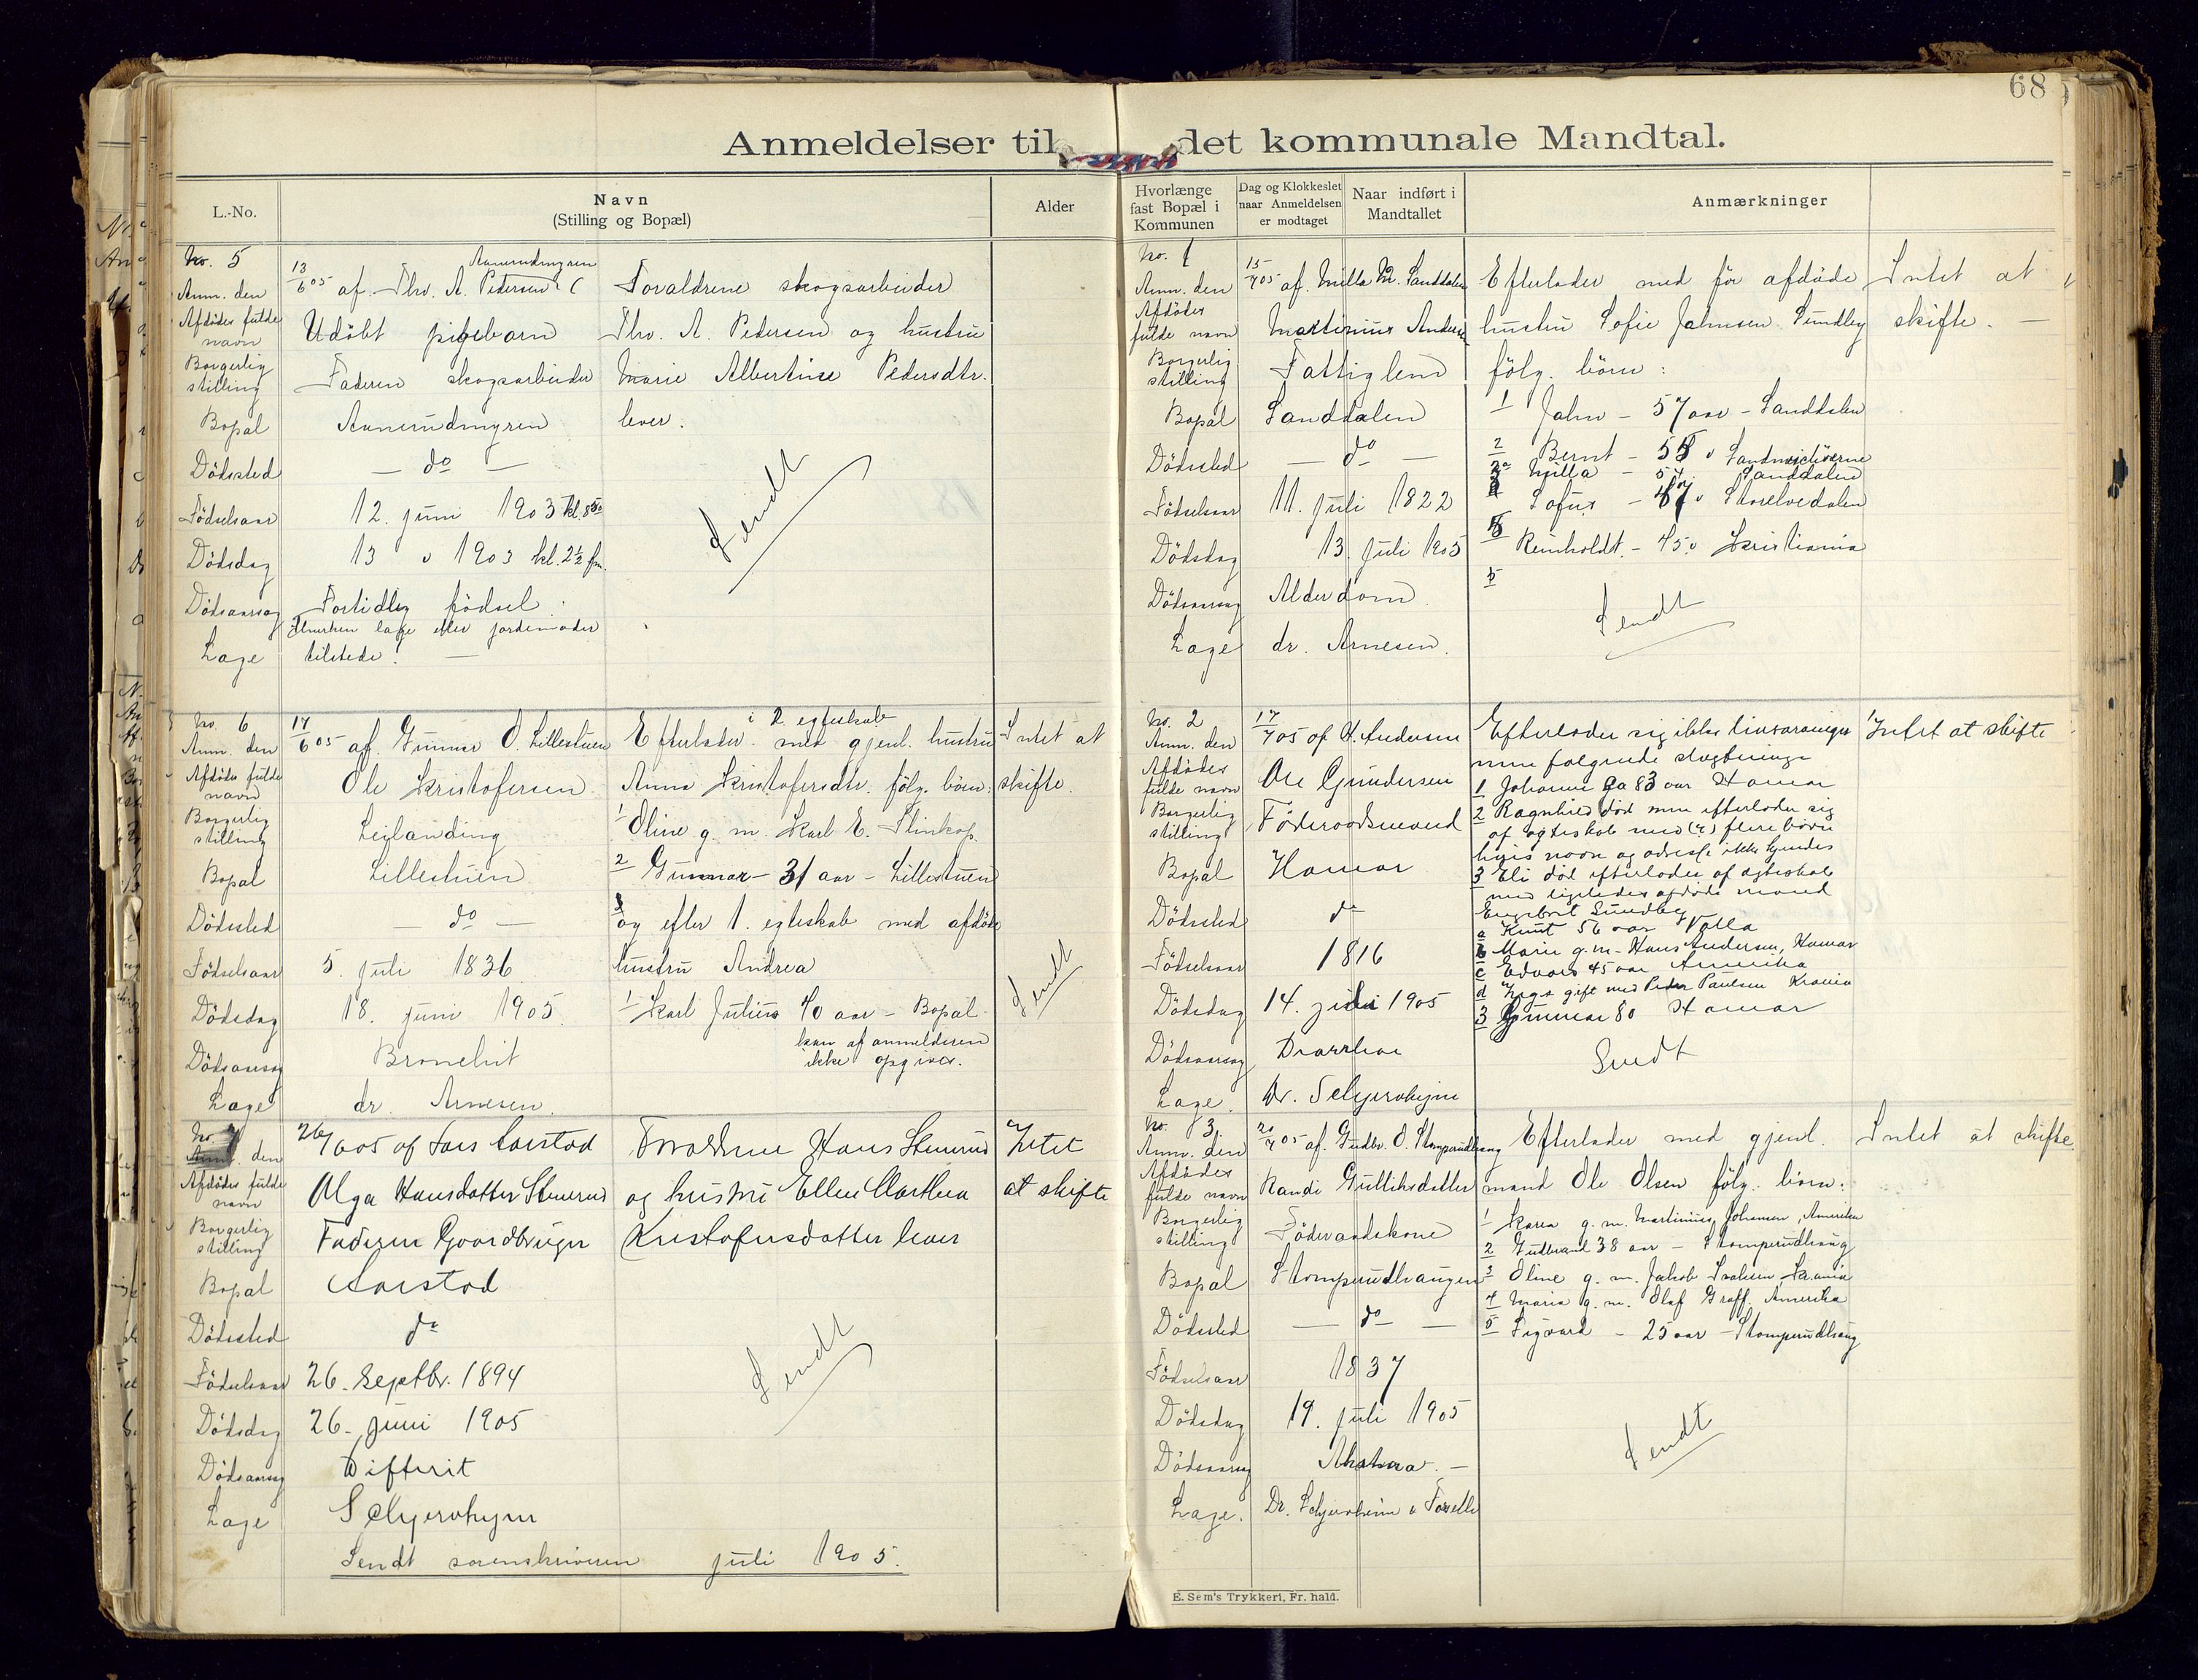 68
Anmeldelser til det kommunale Mandtal.
L.-No.
Navn
(Stilling og Bopæl)
Alder
No. 5
Anm. den 13/6 05 af Thv. A. Pedersen
Aamundmyren
Afdödes fulde navn Udöbt pigebarn
Borgerlig stilling Faderen skogsarbeider
Bopæl Aamundmyren
Dödssted — do —
Födselsaar 12. juni 1903 kl. 8 50
Dödsdag 13 " 1903 kl. 2½ fm.
Dödsaarsag Fortidlig födsel.
Hverken læge eller jordemoder
Læge tilstede! —
Forældrene skogsarbeider
Thv. A. Pedersen og hustru
Marie Albertine Pedersdtr.
lever.
Sendt
No. 6
Anm. den 17/6 05 af Gunnar O. Lillestuen
Afdödes fulde navn Ole Kristofersen
Borgerlig stilling Leilænding
Bopæl Lillestuen
Dödssted — do —
Födselsaar 5. juli 1836
Dödsdag 18. juni 1905.
Dödsaarsag Bronchit
Læge dr. Arnesen.
i 2 egteskab
Efterlader med gjenl. hustru
Anna Kristofersdtr. fölg. börn:
1 Oline g. m. Karl E. Slinkop.
2 Gunnar – 31 aar – Lillestuen
og efter 1. egteskab med afdöde
hustru Andrea
1 Karl Julius 40 aar – Bopæl
kan af anmelderen
ikke opgives.
Intet at
skifte.
Sendt
No. 7
Anm. den 26/6 05 af Lars Aarstad
Afdödes fulde navn Olga Hansdatter Stenerud
Borgerlig stilling Faderen Gaardbruger
Bopæl Aarstad
Dödssted do
Födselsaar 26. Septbr. 1894
Dödsdag 26. juni 1905
Dödsaarsag Difterit
Læge Schjervheim
Forældrene Hans Stenerud
og hustru Ellen Marthea
Kristofersdatter lever
Intet
at skifte
Sendt
Sendt sorenskriveren juli 1905.
Hvorlænge
fast Bopæl i
Kommunen
Dag og Klokkeslet
naar Anmeldelsen
er modtaget
Naar indført i
Mandtallet
Anmærkninger
No. 1
Anm. den 15/7 05 af Milla M. Sanddalen
Afdödes fulde navn Martinius Andersen
Borgerlig stilling Fattiglem
Bopæl Sanddalen
Dödssted — do —
Födselsaar 11. juli 1822
Dödsdag 13. juli 1905
Dödsaarsag Alderdom.
Læge dr. Arnesen.
Efterlader med för afdöde
hustru Sofie Jahnsen Sundby
fölg. börn:
1 Jahn – 57 aar – Sanddalen
2 Bernt – 55 "
3 Milla – 54 Sanddalen
4 Sofus – 47 " Storelvedalen
5 Reinholdt. – 45 " Kristiania
5
Sendt
Intet at
skifte. —
No. 2
Anm. den 17/7 05 af H. Andersen
Afdödes fulde navn Ole Gundersen
Borgerlig stilling Föderaadsmand
Bopæl Hamar
Dödssted do
Födselsaar 1816
Dödsdag 14. juli 1905
Dödsaarsag Diarrhae
Læge. Dr. Schjervheim
Efterlader sig ikke livsarvinger
men følgende slægtninge
1 Johanne Ca 83 aar Hamar
2 Ragnhild død men efterlader sig
af ægteskab med (?) flere børn
hvis navn og adresse ikke kjendes
3 Eli død efterlader af ægteskab
med ligeledes afdøde mand
Engebret Sundby
a Knut 56 aar Valla
b Marie g. m. Hans Andersen, Hamar
c Edvard 45 aar Amerika
d Inga gift med Peder Paulsen Krania
3 Gunnar 80 Hamar
Sendt
Intet at skifte
No. 3.
Anm. den 20/7 05 af Gudbr. O. Stomperudhaug
Afdödes fulde navn Randi Gulliksdatter
Borgerlig stilling Föderaadskone
Bopæl Stomperudhaugen
Dödssted — do —
Födselsaar 1837
Dödsdag 19. juli 1905
Dödsaarsag
Læge. Dr. Schjervheim
Efterlader med gjenl.
mand Ole Olsen fölg. börn:
1 Karen g. m. Martinius Johansen, Amerika
2 Gudbrand 38 aar – Stomperudhaug
3 Oline g. m. Jakob Isaksen, Krania
4 Maria g. m. Olaf Graff, Amerika
5 Sigvard – 25 aar – Stomperudhaug
Sendt
Intet at skifte.
E. Sem's Trykkeri, Fr. hald.